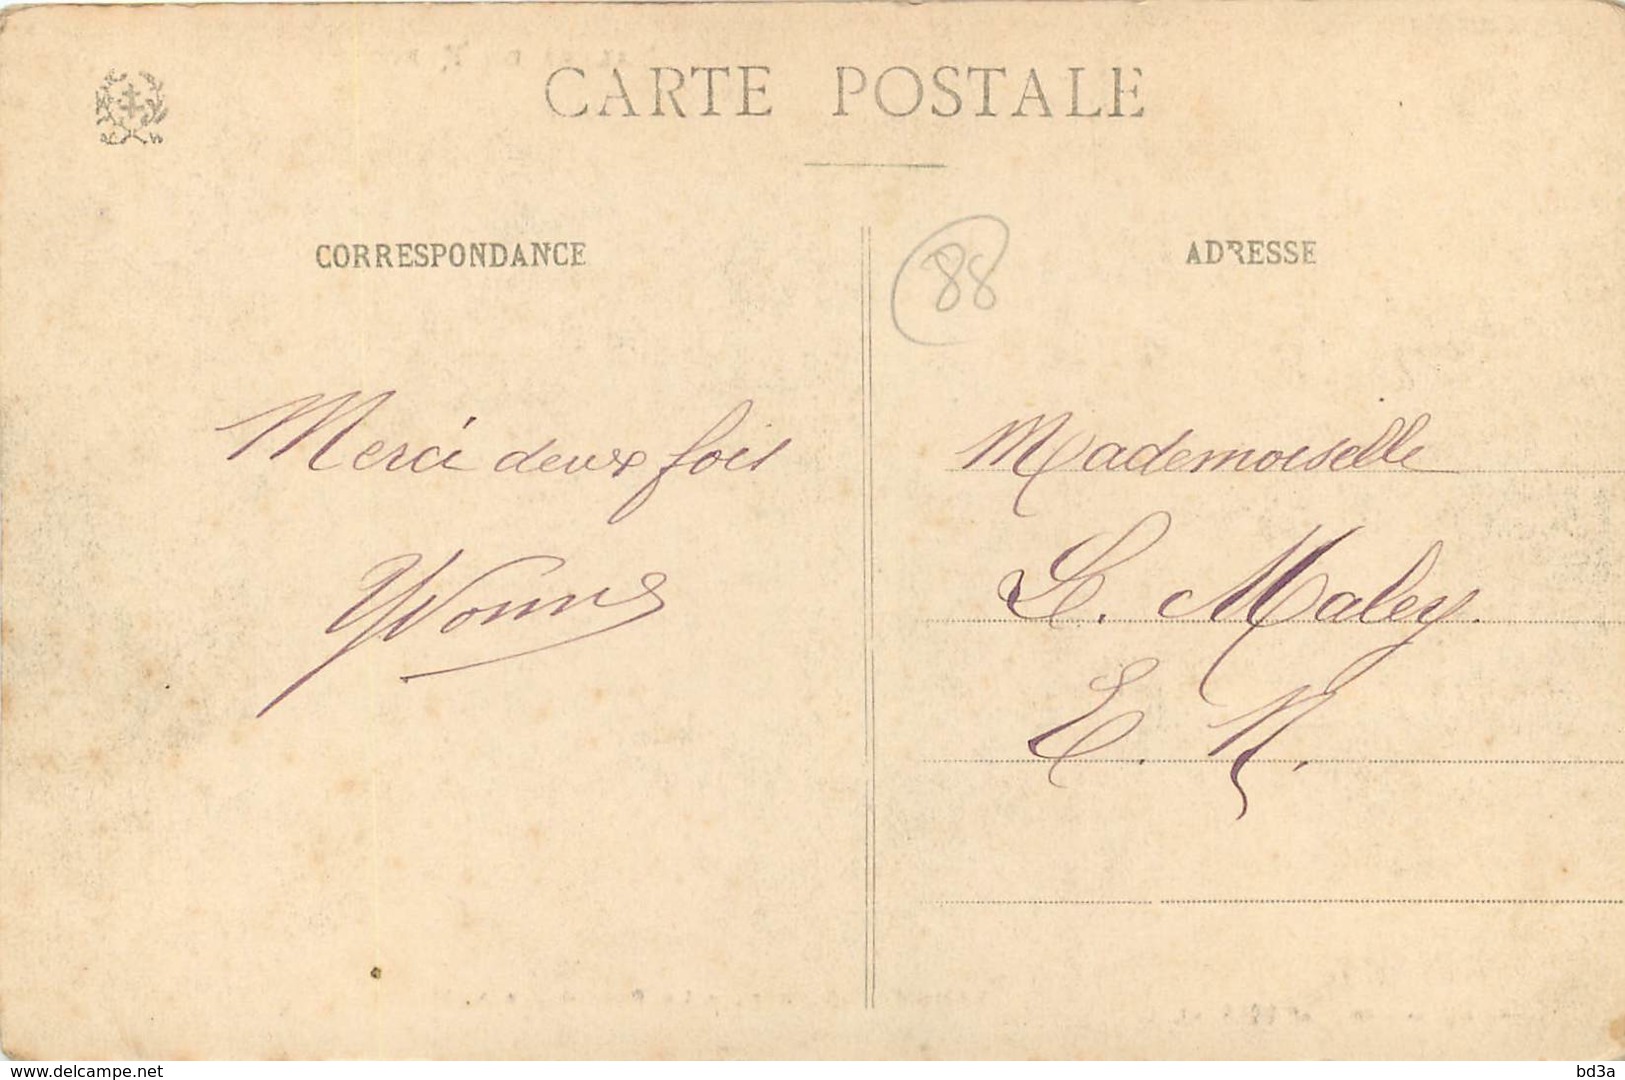 CARTE POSTALE
CORRESPONDANCE
ADRESSE
88
Merci deux fois
Yvonne
Mademoiselle
L. Maley.
E. N.
www.delcampe.net
bd3a